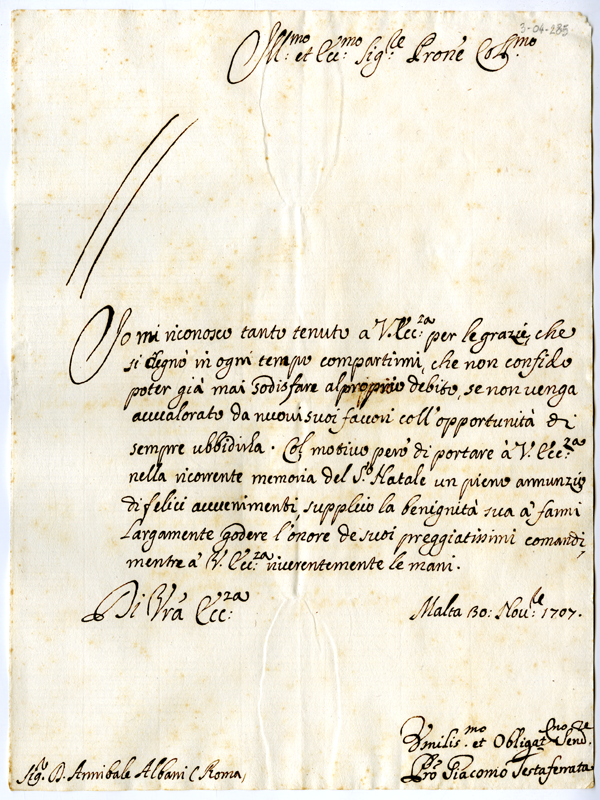 3-04-285
Ill:mo et Ecc:mo Sig:re Prone Col:mo
Io mi riconosco tanto tenuto a V. Ecc:za per le grazie, che
si degnò in ogni tempo compartirmi, che non confido
poter già mai sodisfare al proprio debito, se non venga
avvalorato da nuovi suoi favori coll'opportunità di
sempre ubbidirla. Col motivo però di portare à V. Ecc:za
nella ricorrente memoria del S.to Natale un pieno annunzio
di felici avvenimenti, supplico la benignità sua à farmi
largamente godere l'onore de suoi preggiatissimi comandi,
mentre à V. Ecc:za riverentemente le mani.
Di Vrà Ecc:za
Malta 30: Nov:re 1707.
Umilis.mo et Obligat.mo Serv.re
Sig.r D. Annibale Albani (Roma)
Giacomo Testaferrata